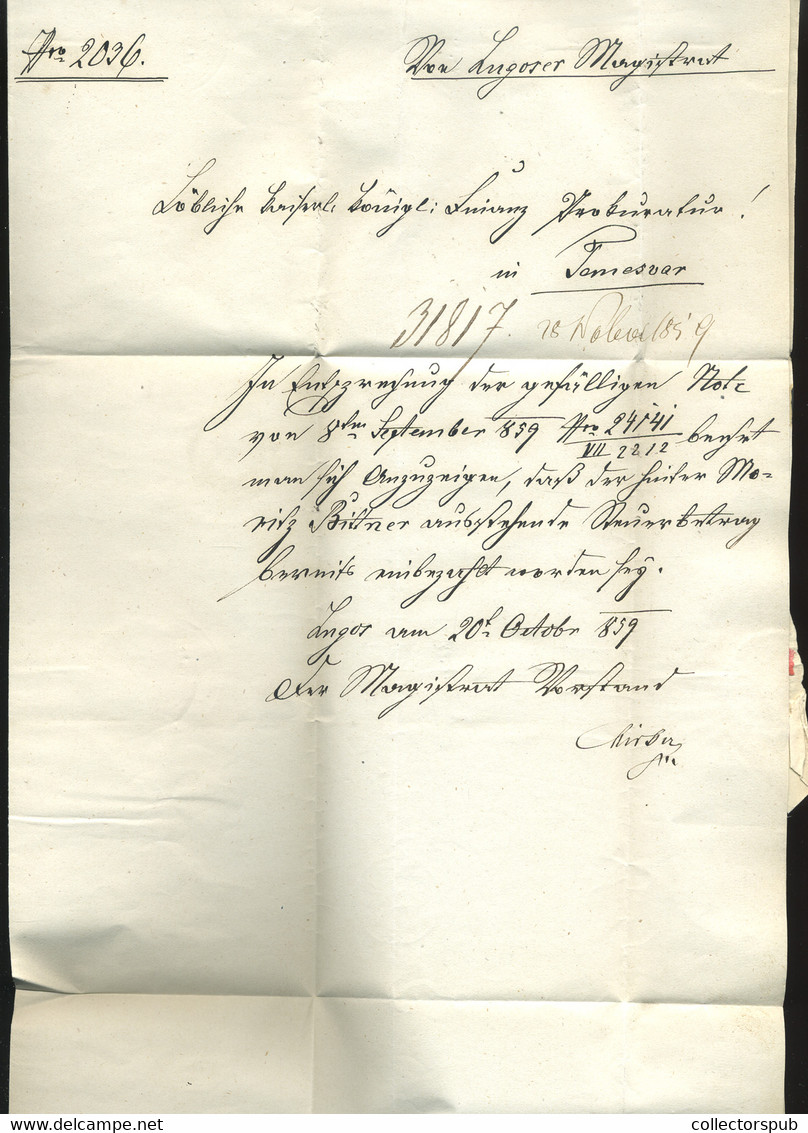 Nro 2036.
Von Lugoser Magistrat
Löbliche kaiserl: königl: Finanz Prokuratur!
in Temesvar
31817. 28 859
In Entsprechung der gefälligen Note
von 8ten September 859 Nro 24141/VII 2212 beehrt
man sich Anzuzeigen, daß der hinter Mo-
ritz Bittner ausstehende Steuerbetrag
bereits einbezahlt worden sey.
Lugos am 20t Octobr 859
Der Magistrat Vorstand
delcampe.net
collectorspub